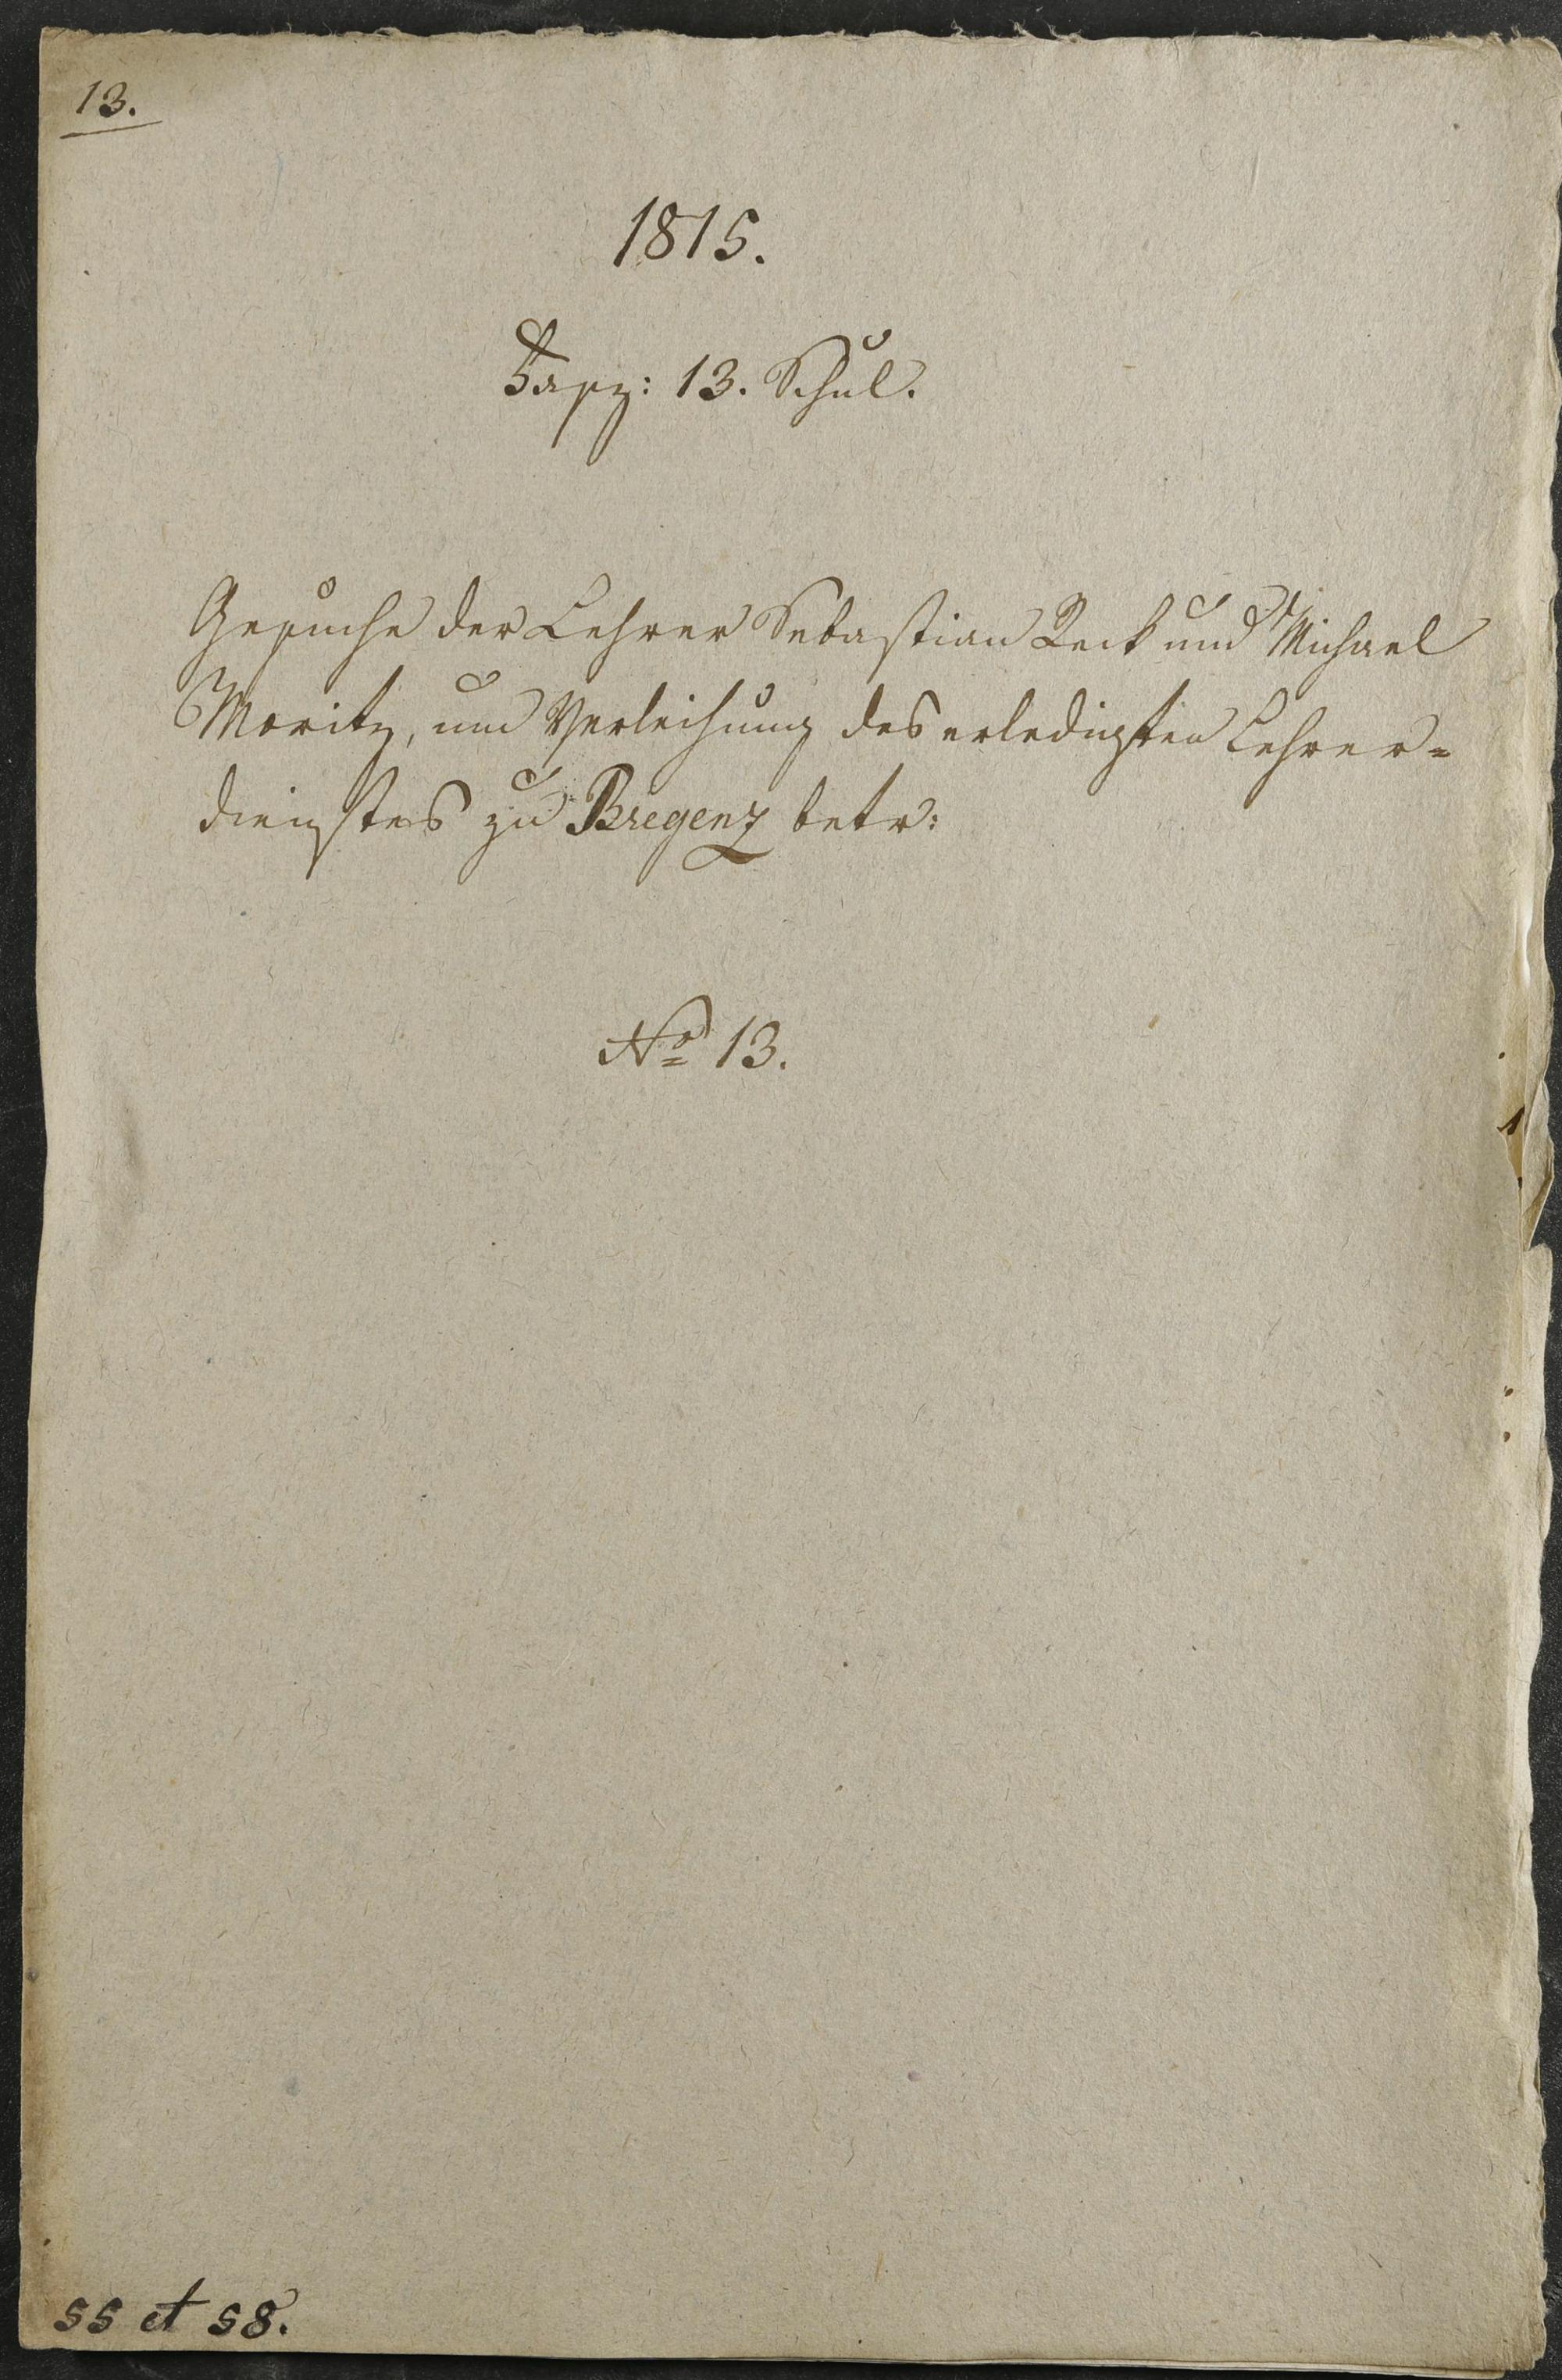 13.
1815.
Fasz: 13. Schul.
Gesuche der Lehrer Sebastian Reck und Michael
Moritz, um Verleihung des erledigten Lehrer=
dienstes zu Bregenz betr:
No 13.
55 et 58.